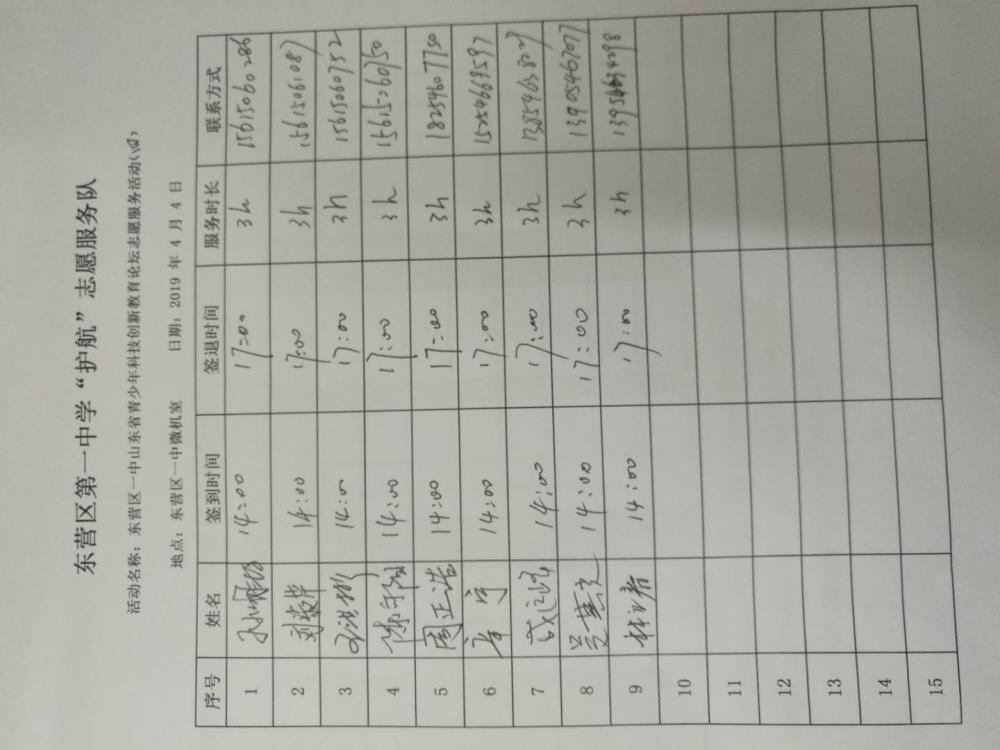 东营区第一中学“护航”志愿服务队
活动名称：东营区一中山东省青少年科技创新教育论坛志愿服务活动(四)
地点：东营区一中微机室 日期：2019 年 4 月 4 日
序号 姓名 签到时间 签退时间 服务时长 联系方式
1 14:00 17:00 3h 15615060286
2 14:00 17:00 3h
3 14:00 17:00 3h 15615060752
4 14:00 17:00 3h 15615060750
5 周正浩 14:00 17:00 3h 18254607750
6 14:00 17:00 3h 15254669597
7 14:00 17:00 3h
8 14:00 17:00 3h 13905467077
9 14:00 17:00 3h
10
11
12
13
14
15